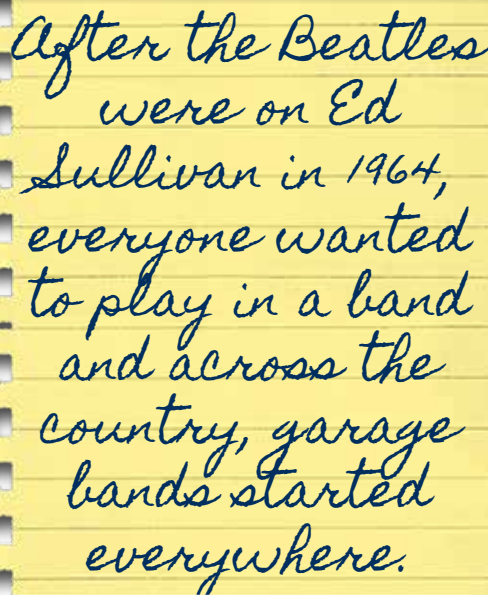 After the Beatles
were on Ed
Sullivan in 1964,
everyone wanted
to play in a band
and across the
country, garage
bands started
everywhere.